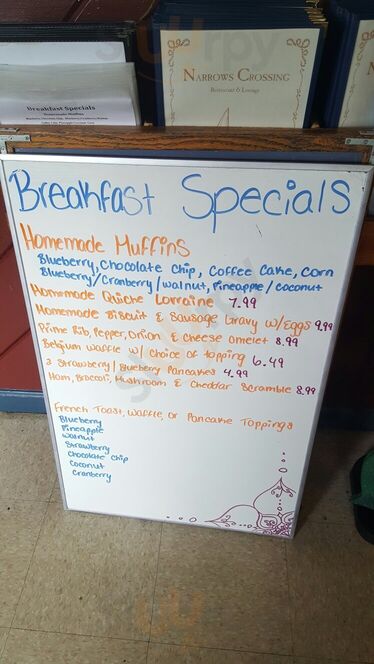 Narrows Crossing
Restaurant & Lounge
Breakfast Specials
Homemade Muffins
Breakfast Specials
Homemade Muffins
Blueberry, Chocolate Chip, Coffee Cake, Corn
Blueberry/Cranberry/walnut, Pineapple/coconut
Homemade Quiche Lorraine 7.99
Homemade Biscuit & Sausage Gravy w/Eggs 9.99
Prime Rib, Pepper, Onion & Cheese omelet 8.99
Belgium Waffle w/ Choice of topping 6.49
3 Strawberry/Blueberry Pancakes 4.99
Ham, Broccoli, Mushroom & Cheddar Scramble 8.99
French Toast, Waffle, or Pancake Toppings
Blueberry
Pineapple
Walnut
Strawberry
Chocolate Chip
Coconut
Cranberry